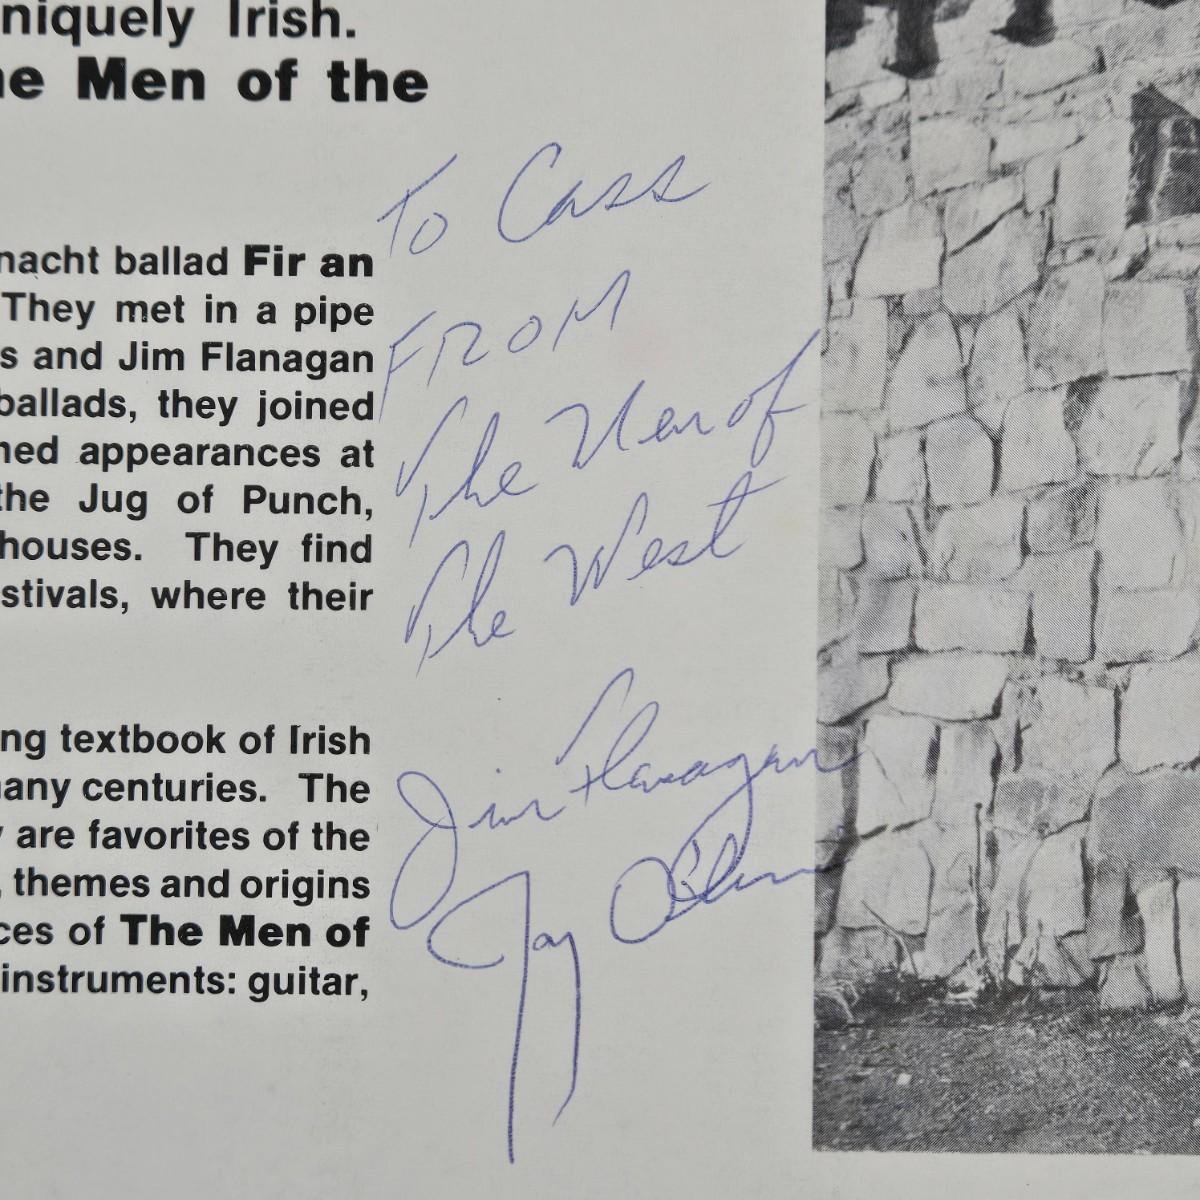 niquely Irish.
Men of the
nacht ballad Fir an
They met in a pipe
s and Jim Flanagan
ballads, they joined
ned appearances at
the Jug of Punch,
houses. They find
stivals, where their
ng textbook of Irish
any centuries. The
are favorites of the
, themes and origins
ces of The Men of
instruments: guitar,
To Cass
FROM
The Men of
The West
Jim Flanagan
Jay